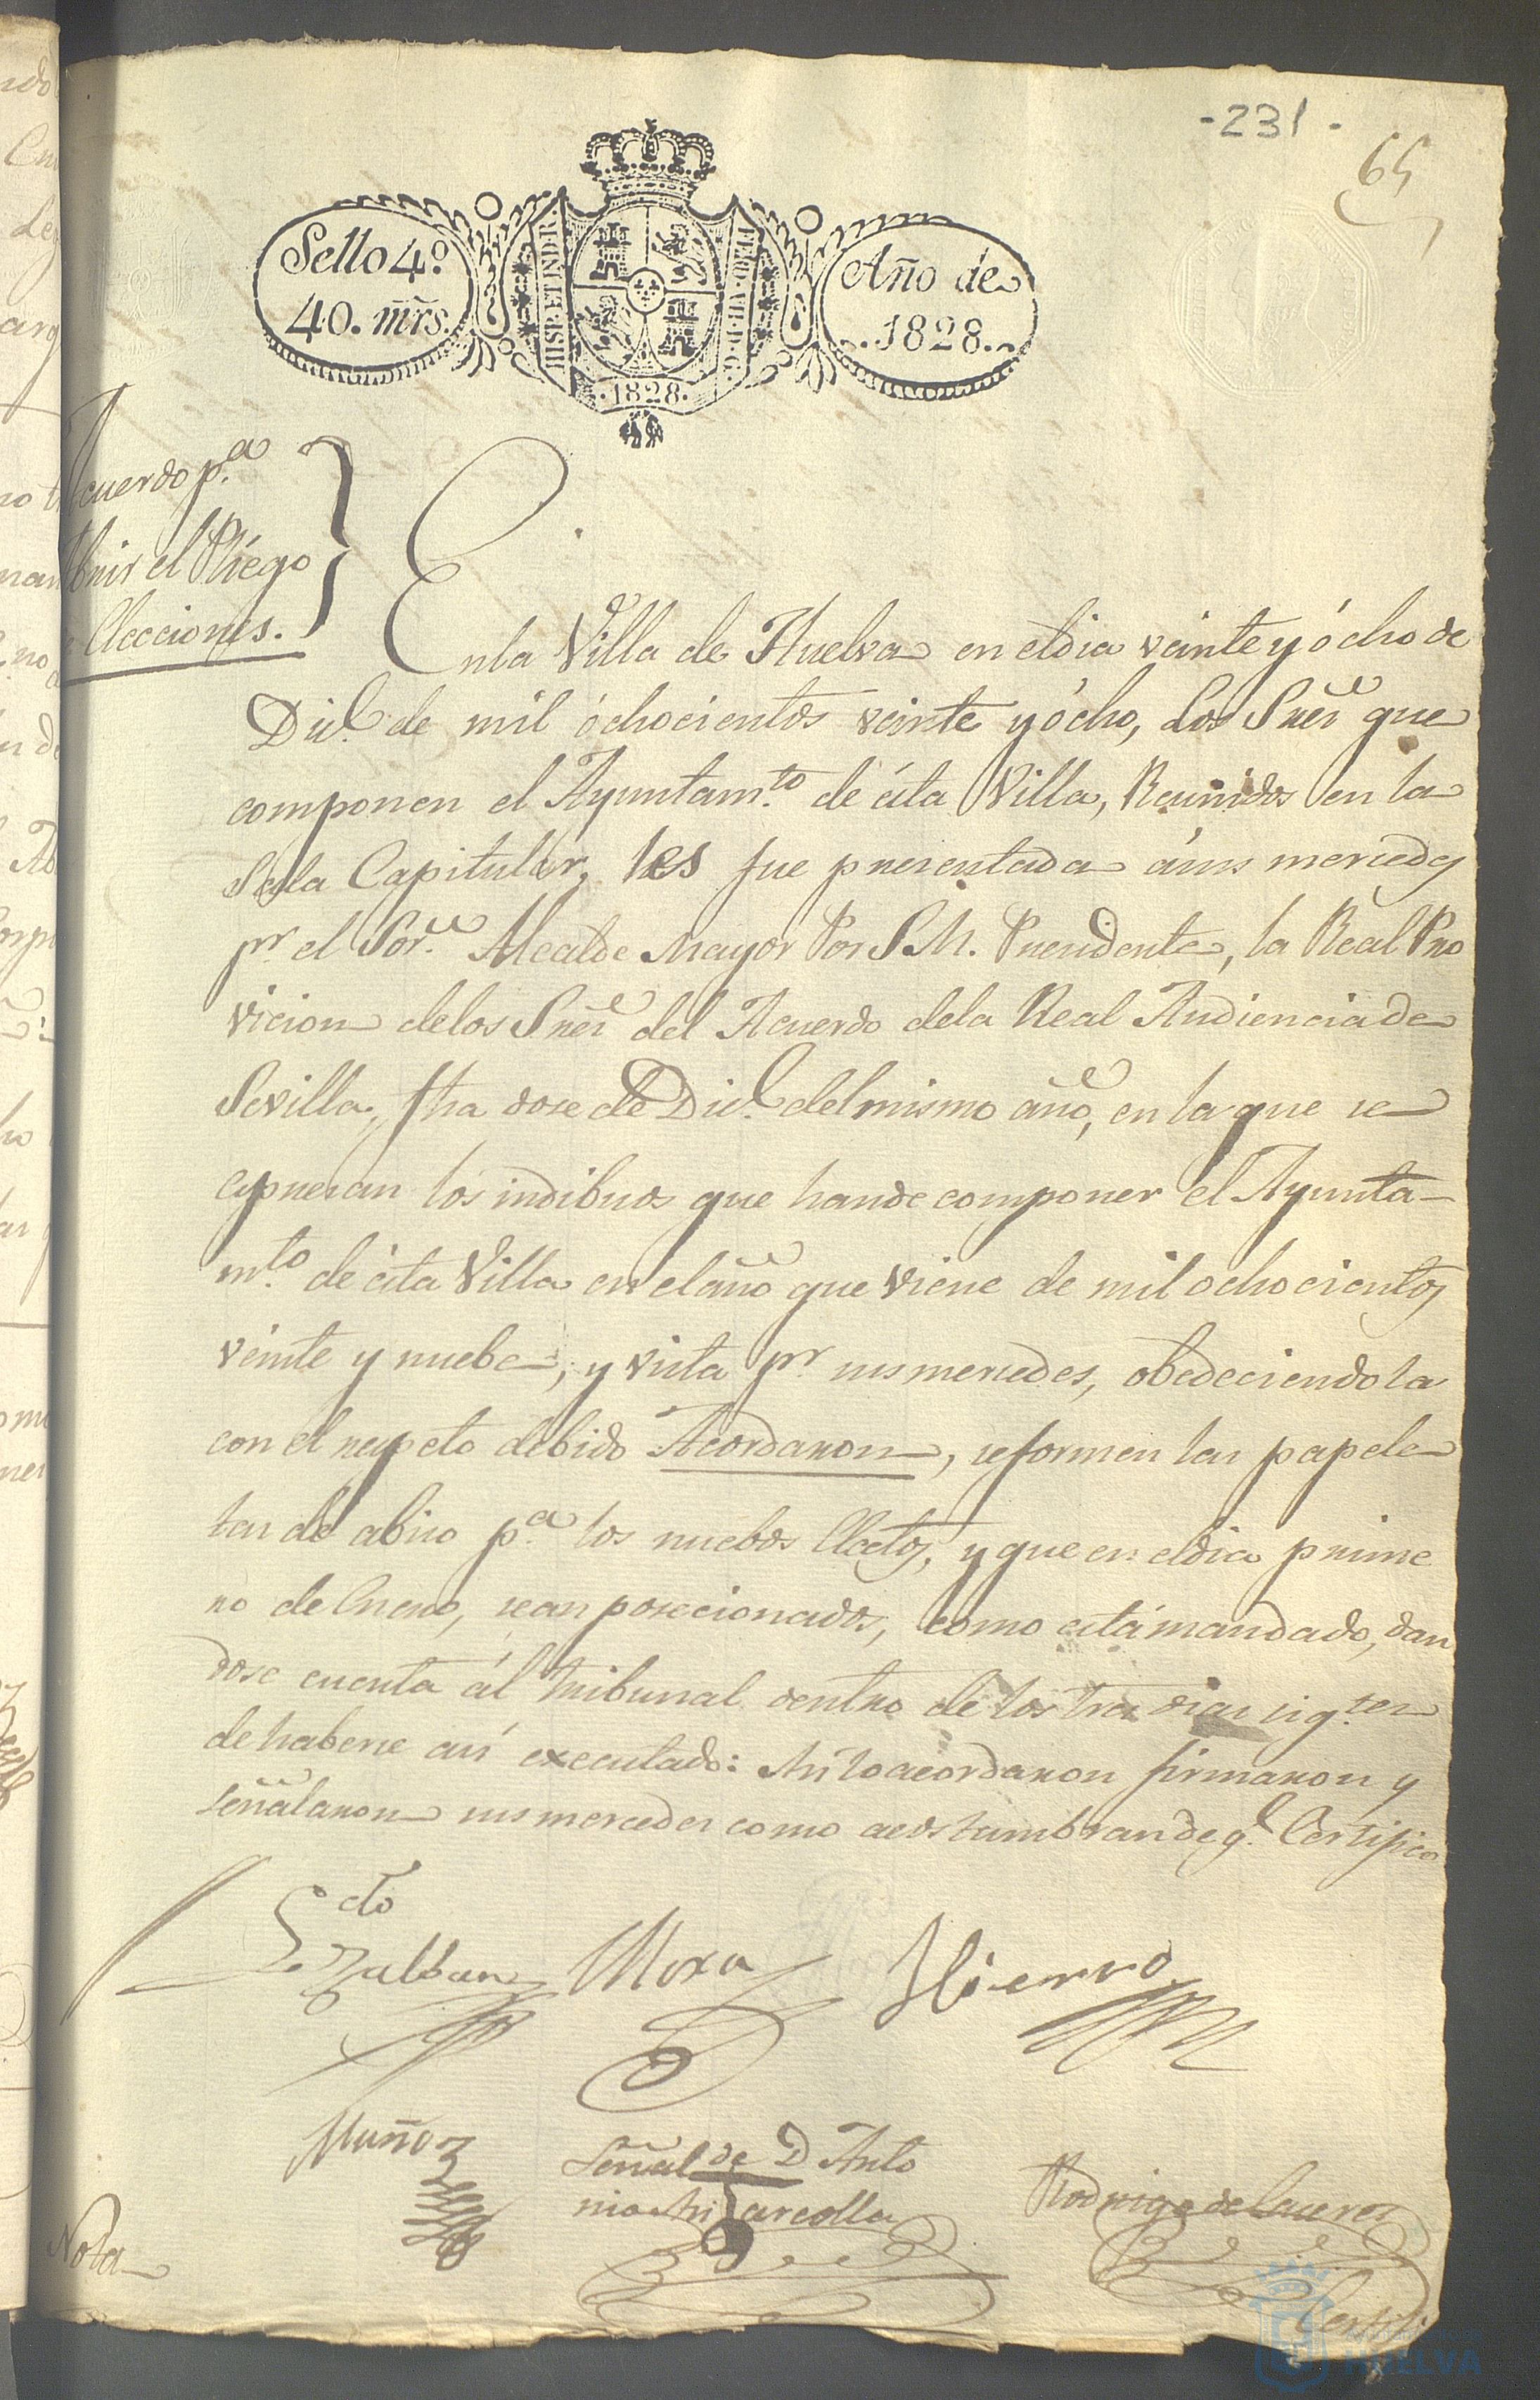 -231-
65
Sello 4º
40. mrs.
HISP. ET IND. R.
FERD. VII. D. G.
.1828.
Año de
1828.
Acuerdo p.ª
abrir el Pliego
Elecciones.
En la Villa de Huelva en el dia veinte y ócho de
Dic.e de mil óchocientos veinte y ócho, Los Sres que
componen el Ayuntam.to de ésta Villa, Reunidos en la
Sala Capitular, les fue presentada á sus mercedes
pr. el Sor. Alcalde Mayor Por S.M. Presidente, la Real Pro
vicion de los Sres del Acuerdo de la Real Audiencia de
Sevilla, fha dose de Dic.e del mismo año, en la que se
espresan los indibuos que han de componer el Ayunta-
m.to de ésta Villa en el año que viene de mil ochocientos
veinte y nuebe, y vista pr. sus mercedes, obedeciendola
con el respeto debido Acordaron, se formen las papele
tas de abiso p.ª los nuebos Electos, y que en el dia prime
ro de Enero, sean posecionados, como está mandado, dan
dose cuenta ál tribunal dentro de los tres dias sig.tes
de haberse asi executado: Asi lo acordaron firmaron y
señalaron sus mercedes como acostumbran de q.e Certifico
L.cdo
Zalban Mora Hierro
Muñoz
Señal de D Anto
nio Garcolla
Rodrigo de
Nota
HUELVA